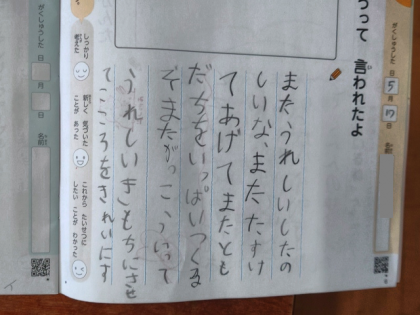 って 言われたよ
がくしゅうした日
5月
17日
名前
また、うれしいしたの
しいな、また、たすけ
てあげてまたとも
だちをいっぱいつくる
ぞまたがっこういって
うれしいきもちにさせ
てこころをきれいにす
しっかり考えた
新しく気づいたことがあった
これからたいせつにしたいことがわかった
がくしゅうした日
月
日
名前